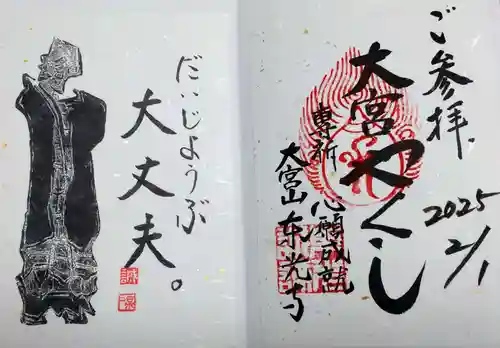 ご参拝
2025
2/1
大宮やくし
専祈 心願成就
大宮山 東光寺
だいじょうぶ
大丈夫。
誠